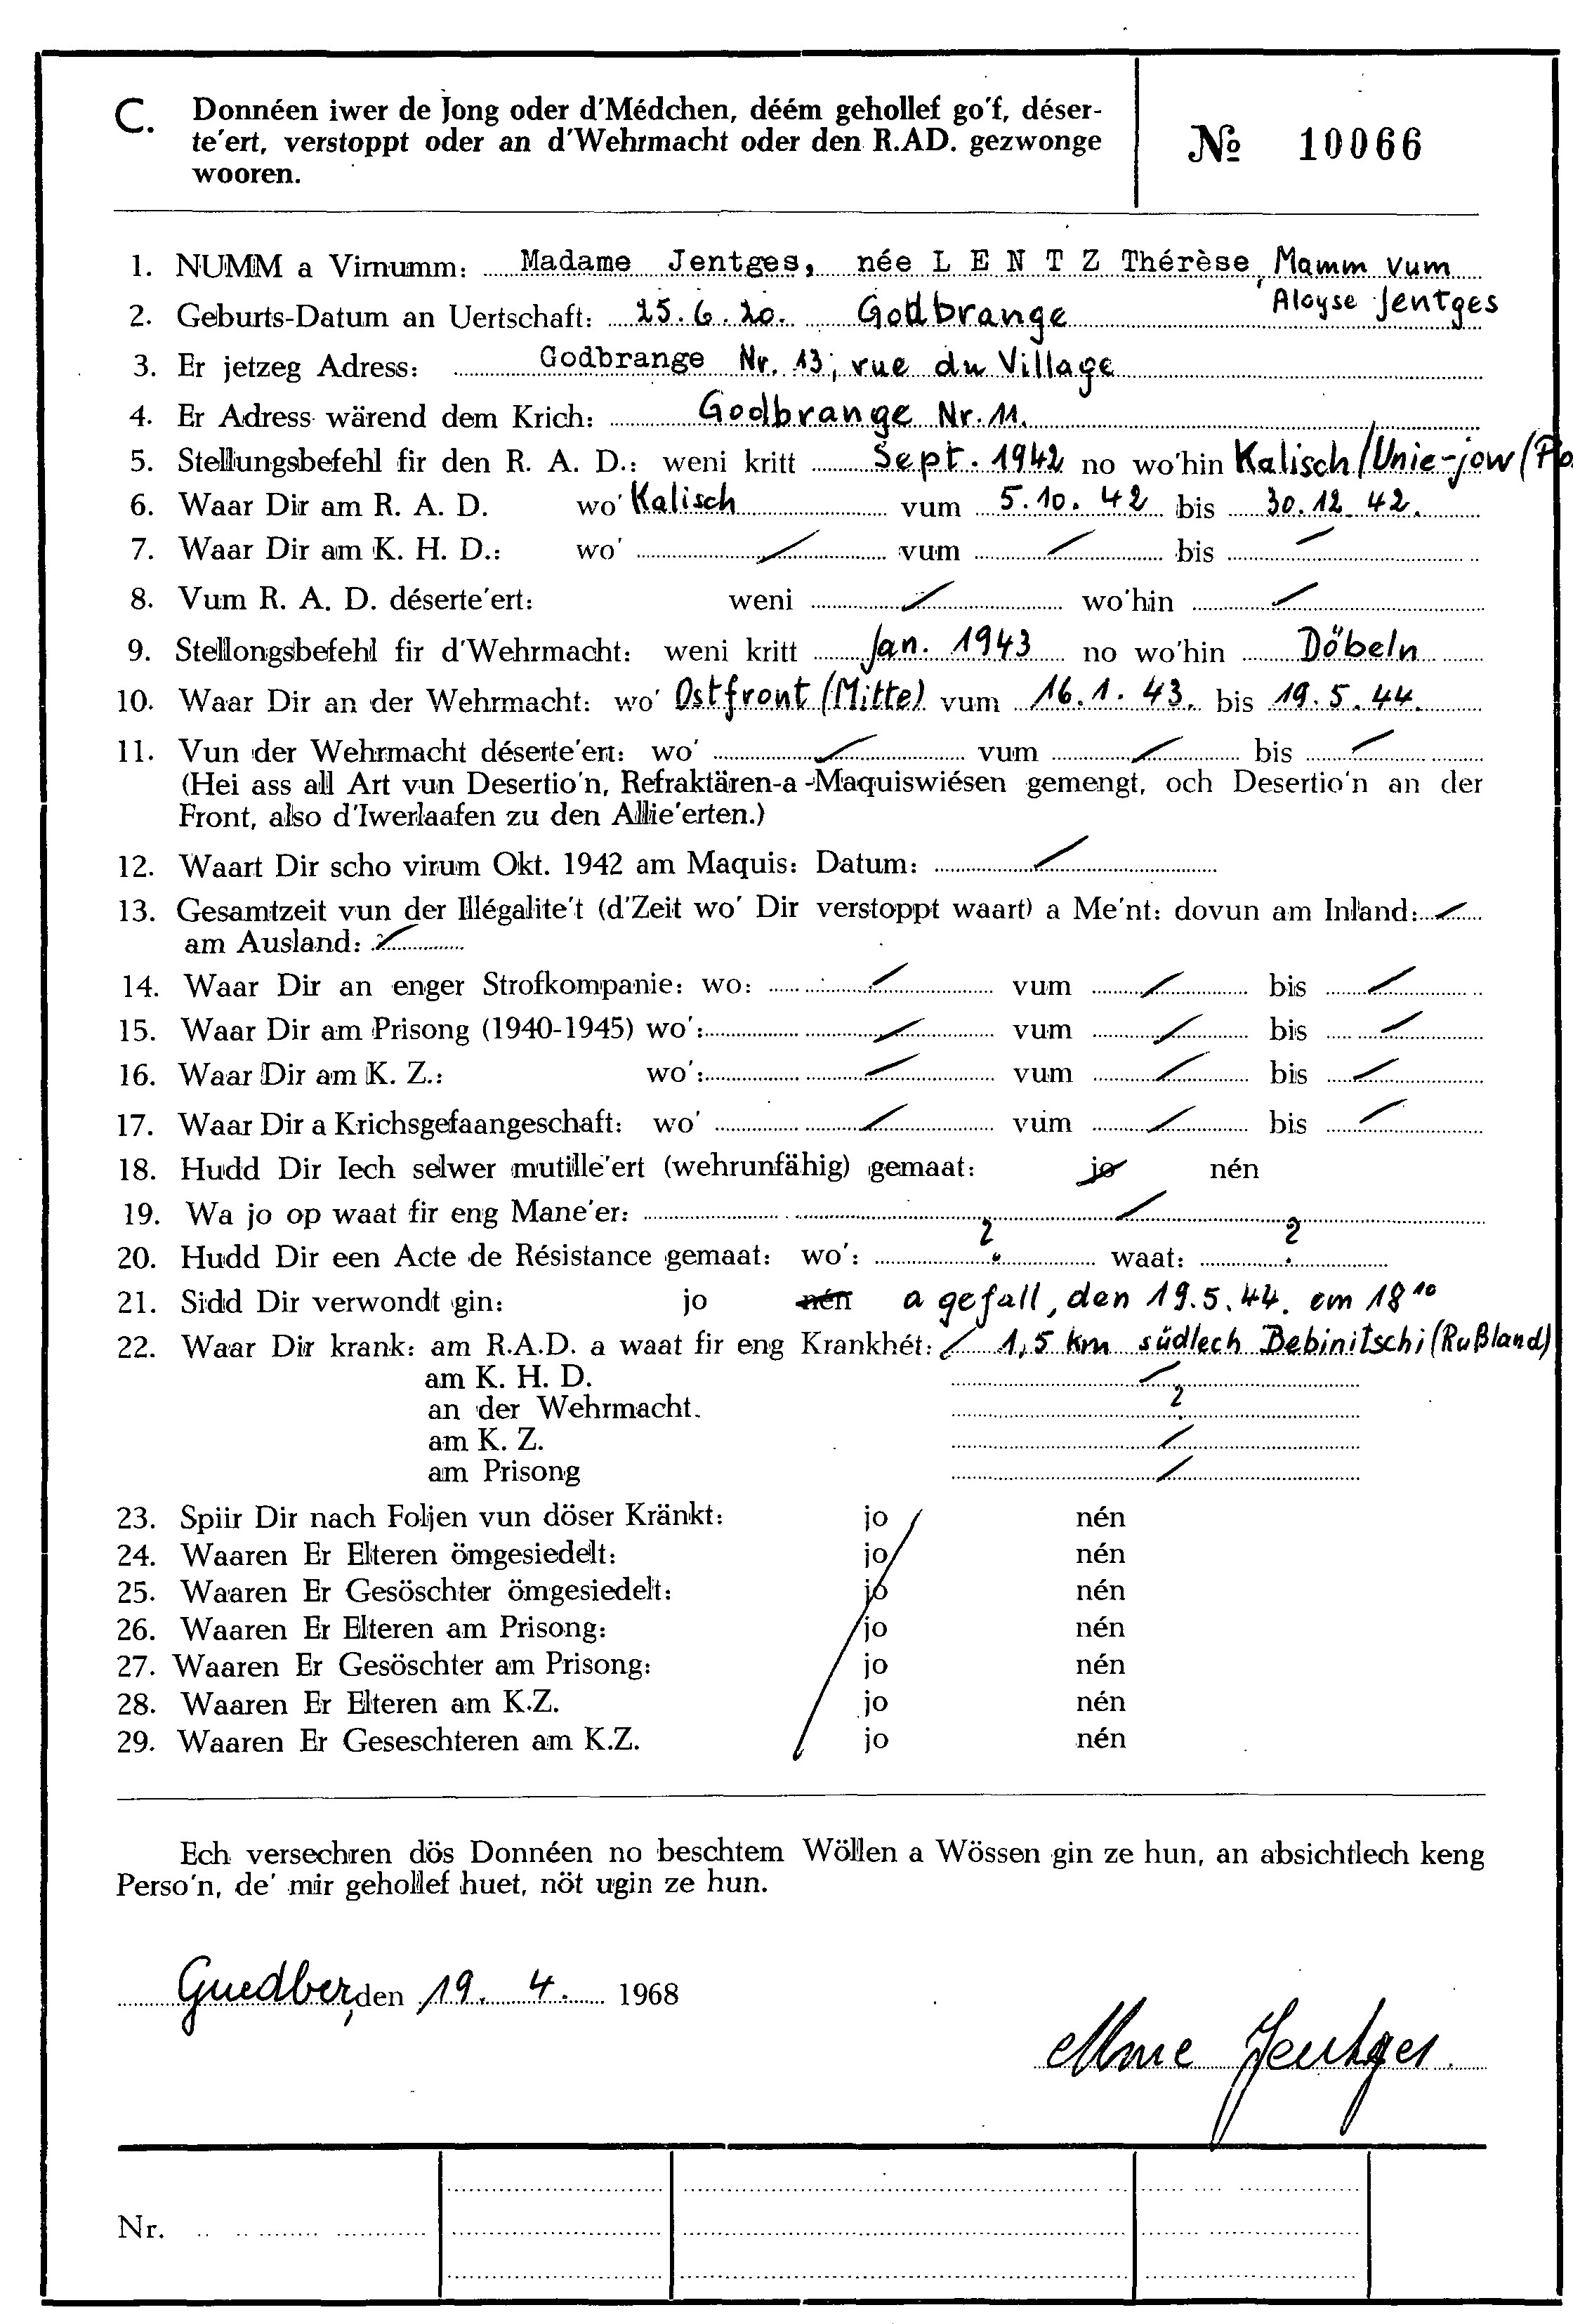 C. Donnéen iwer de Jong oder d'Médchen, déém gehollef go'f, déser-
te'ert, verstoppt oder an d'Wehrmacht oder den R.AD. gezwonge
wooren.
№ 10066
1. NUMM a Virnumm: Madame Jentges, née L E N T Z Thérèse, Mamm vum
Aloyse Jentges
2. Geburts-Datum an Uertschaft: 25.6.20. Godbrange
3. Er jetzeg Adress: Godbrange Nr. 13, rue du Village
4. Er Adress wärend dem Krich: Godbrange Nr. 11.
5. Stellungsbefehl fir den R. A. D.: weni kritt Sept. 1942 no wo'hin Kalisch/Unie-jow (Po
6. Waar Dir am R. A. D. wo' Kalisch vum 5.10.42 bis 30.12.42.
7. Waar Dir am K. H. D.: wo' / vum / bis /
8. Vum R. A. D. déserte'ert: weni / wo'hin /
9. Stellongsbefehl fir d'Wehrmacht: weni kritt Jan. 1943 no wo'hin Döbeln
10. Waar Dir an der Wehrmacht: wo' Ostfront (Mitte) vum 16.1.43. bis 19.5.44.
11. Vun der Wehrmacht déserte'ert: wo' / vum / bis /
(Hei ass all Art vun Desertio'n, Refraktären-a-Maquiswiésen gemengt, och Desertio'n an der
Front, also d'Iwerlaafen zu den Allie'erten.)
12. Waart Dir scho virum Okt. 1942 am Maquis: Datum: /
13. Gesamtzeit vun der Illégalite't (d'Zeit wo' Dir verstoppt waart) a Me'nt: dovun am Inland: /
am Ausland: /
14. Waar Dir an enger Strofkompanie: wo: / vum / bis /
15. Waar Dir am Prisong (1940-1945) wo': / vum / bis /
16. Waar Dir am K. Z.: wo': / vum / bis /
17. Waar Dir a Krichsgefaangeschaft: wo' / vum / bis /
18. Hudd Dir Iech selwer mutille'ert (wehrunfähig) gemaat: jo nén
19. Wa jo op waat fir eng Mane'er: /
20. Hudd Dir een Acte de Résistance gemaat: wo': ? waat: ?
21. Sidd Dir verwondt gin: jo nén a gefall, den 19.5.44. em 18¹⁰
22. Waar Dir krank: am R.A.D. a waat fir eng Krankhét: / 1,5 km südlech Bebinitschi (Rußland)
am K. H. D. /
an der Wehrmacht. ?
am K. Z. /
am Prisong /
23. Spiir Dir nach Foljen vun döser Kränkt: jo nén
24. Waaren Er Elteren ömgesiedelt: jo nén
25. Waaren Er Gesöschter ömgesiedelt: jo nén
26. Waaren Er Elteren am Prisong: jo nén
27. Waaren Er Gesöschter am Prisong: jo nén
28. Waaren Er Elteren am K.Z. jo nén
29. Waaren Er Geseschteren am K.Z. jo nén
Ech versechren dös Donnéen no beschtem Wöllen a Wössen gin ze hun, an absichtlech keng
Perso'n, de' mir gehollef huet, nöt ugin ze hun.
Guedber, den 19. 4. 1968
Mme Jentges.
Nr.